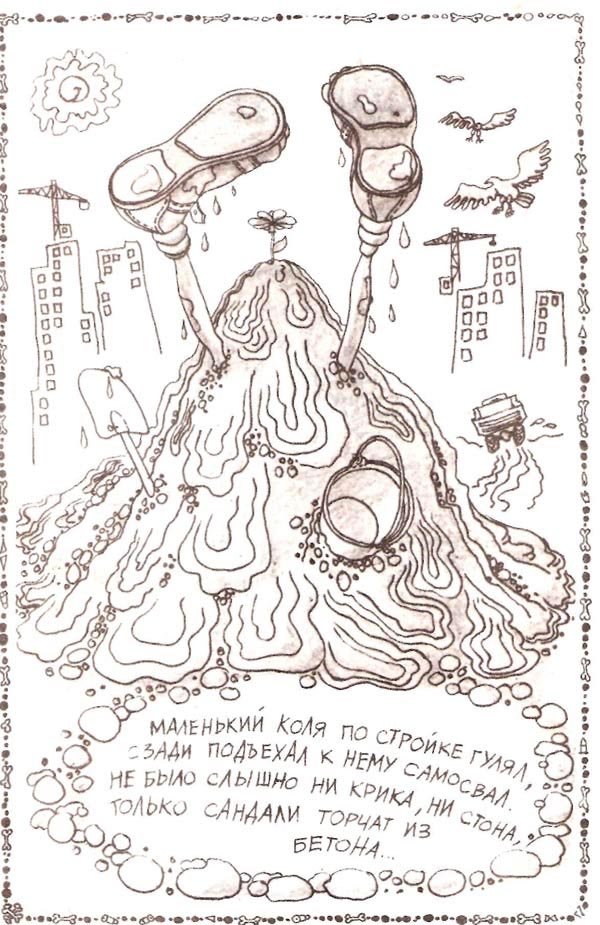 МАЛЕНЬКИЙ КОЛЯ ПО СТРОЙКЕ ГУЛЯЛ,
СЗАДИ ПОДЪЕХАЛ К НЕМУ САМОСВАЛ.
НЕ БЫЛО СЛЫШНО НИ КРИКА, НИ СТОНА,
ТОЛЬКО САНДАЛИ ТОРЧАТ ИЗ
БЕТОНА...